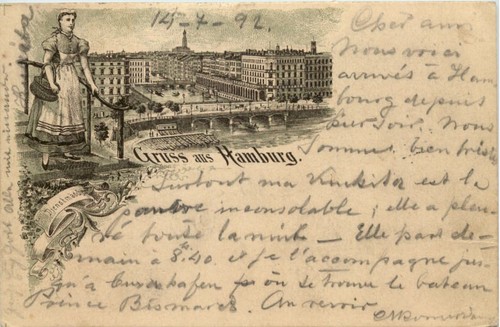 14-7-92.
Cher ami
Nous voici
arrivés à Ham
bourg depuis
hier soir. Nous
sommes bien tristes
Gruss aus Hamburg.
Surtout ma est la
pauvre inconsolable; elle a pleu
ré toute la nuit - Elle part de-
main à 8.40 et je l'accompagne jus-
qu'à Cuxhafen où se trouve le bateau
Prince Bismarck. Au revoir